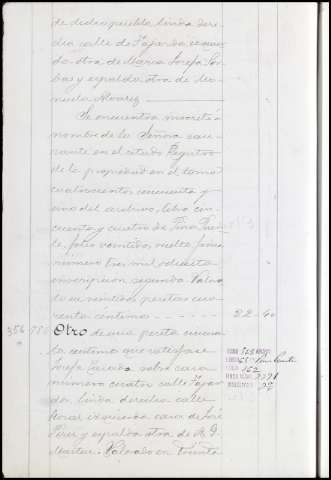 de dicho pueblo, linda dere-
cha calle de Fajardo, izquier-
da otra de Maria Josefa
bas y espalda otra de Ma-
nuela Alvarez
Se encuentra inscrita á
nombre de la Señora cau-
sante en el citado Registro
de la propiedad en el tomo
cuatrocientos cincuenta y
uno del archivo, libro cin-
cuenta y cuatro de
folio veintidos vuelto finca
número tres mil
inscripcion segunda. Valua-
do en veintidos pesetas cua-
renta céntimos - - - - - 22 - 40
356 - 78 Otro de una peseta cincuen-
ta centimos que satisface
Josefa sobre casa
número cuatro calle Fajar-
do, linda derecha calle
izquierda casa de José
Perez y espalda otra de
Martin. Valorado en treinta
TOMO 565
LIBRO 65
FOLIO 162
FINCA NUM.
INSCRIPCION 2ª